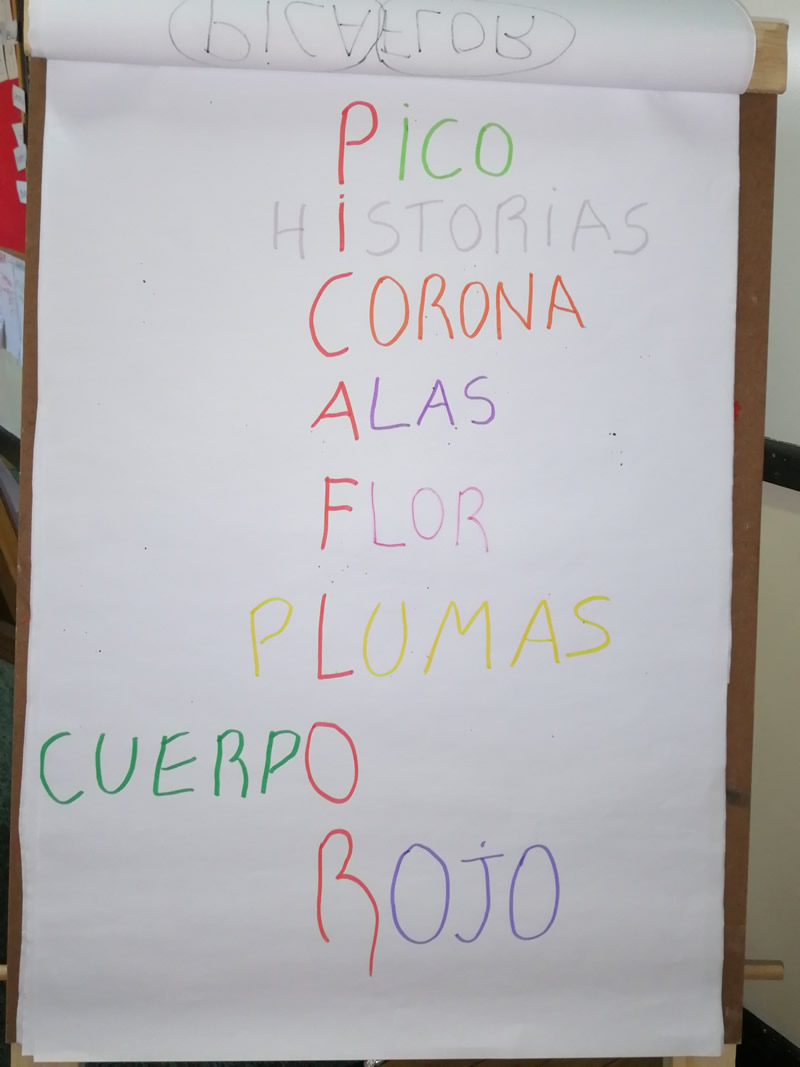 PICAFLOR
PiCO
HiSTORiAS
CORONA
ALAS
FLOR
PLUMAS
CUERPO
ROJO